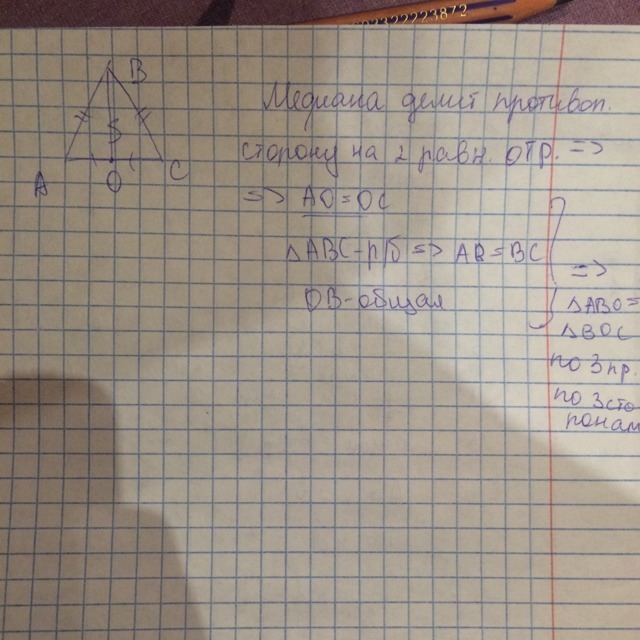 02322223872
B
A
O
C
Медиана делит противоп.
сторону на 2 равн. отр. =>
=> AO=OC
△ABC-р/б => AB=BC
OB-общая
=>
△ABO=
△BOC
по 3 пр.
по 3 сто
ронам